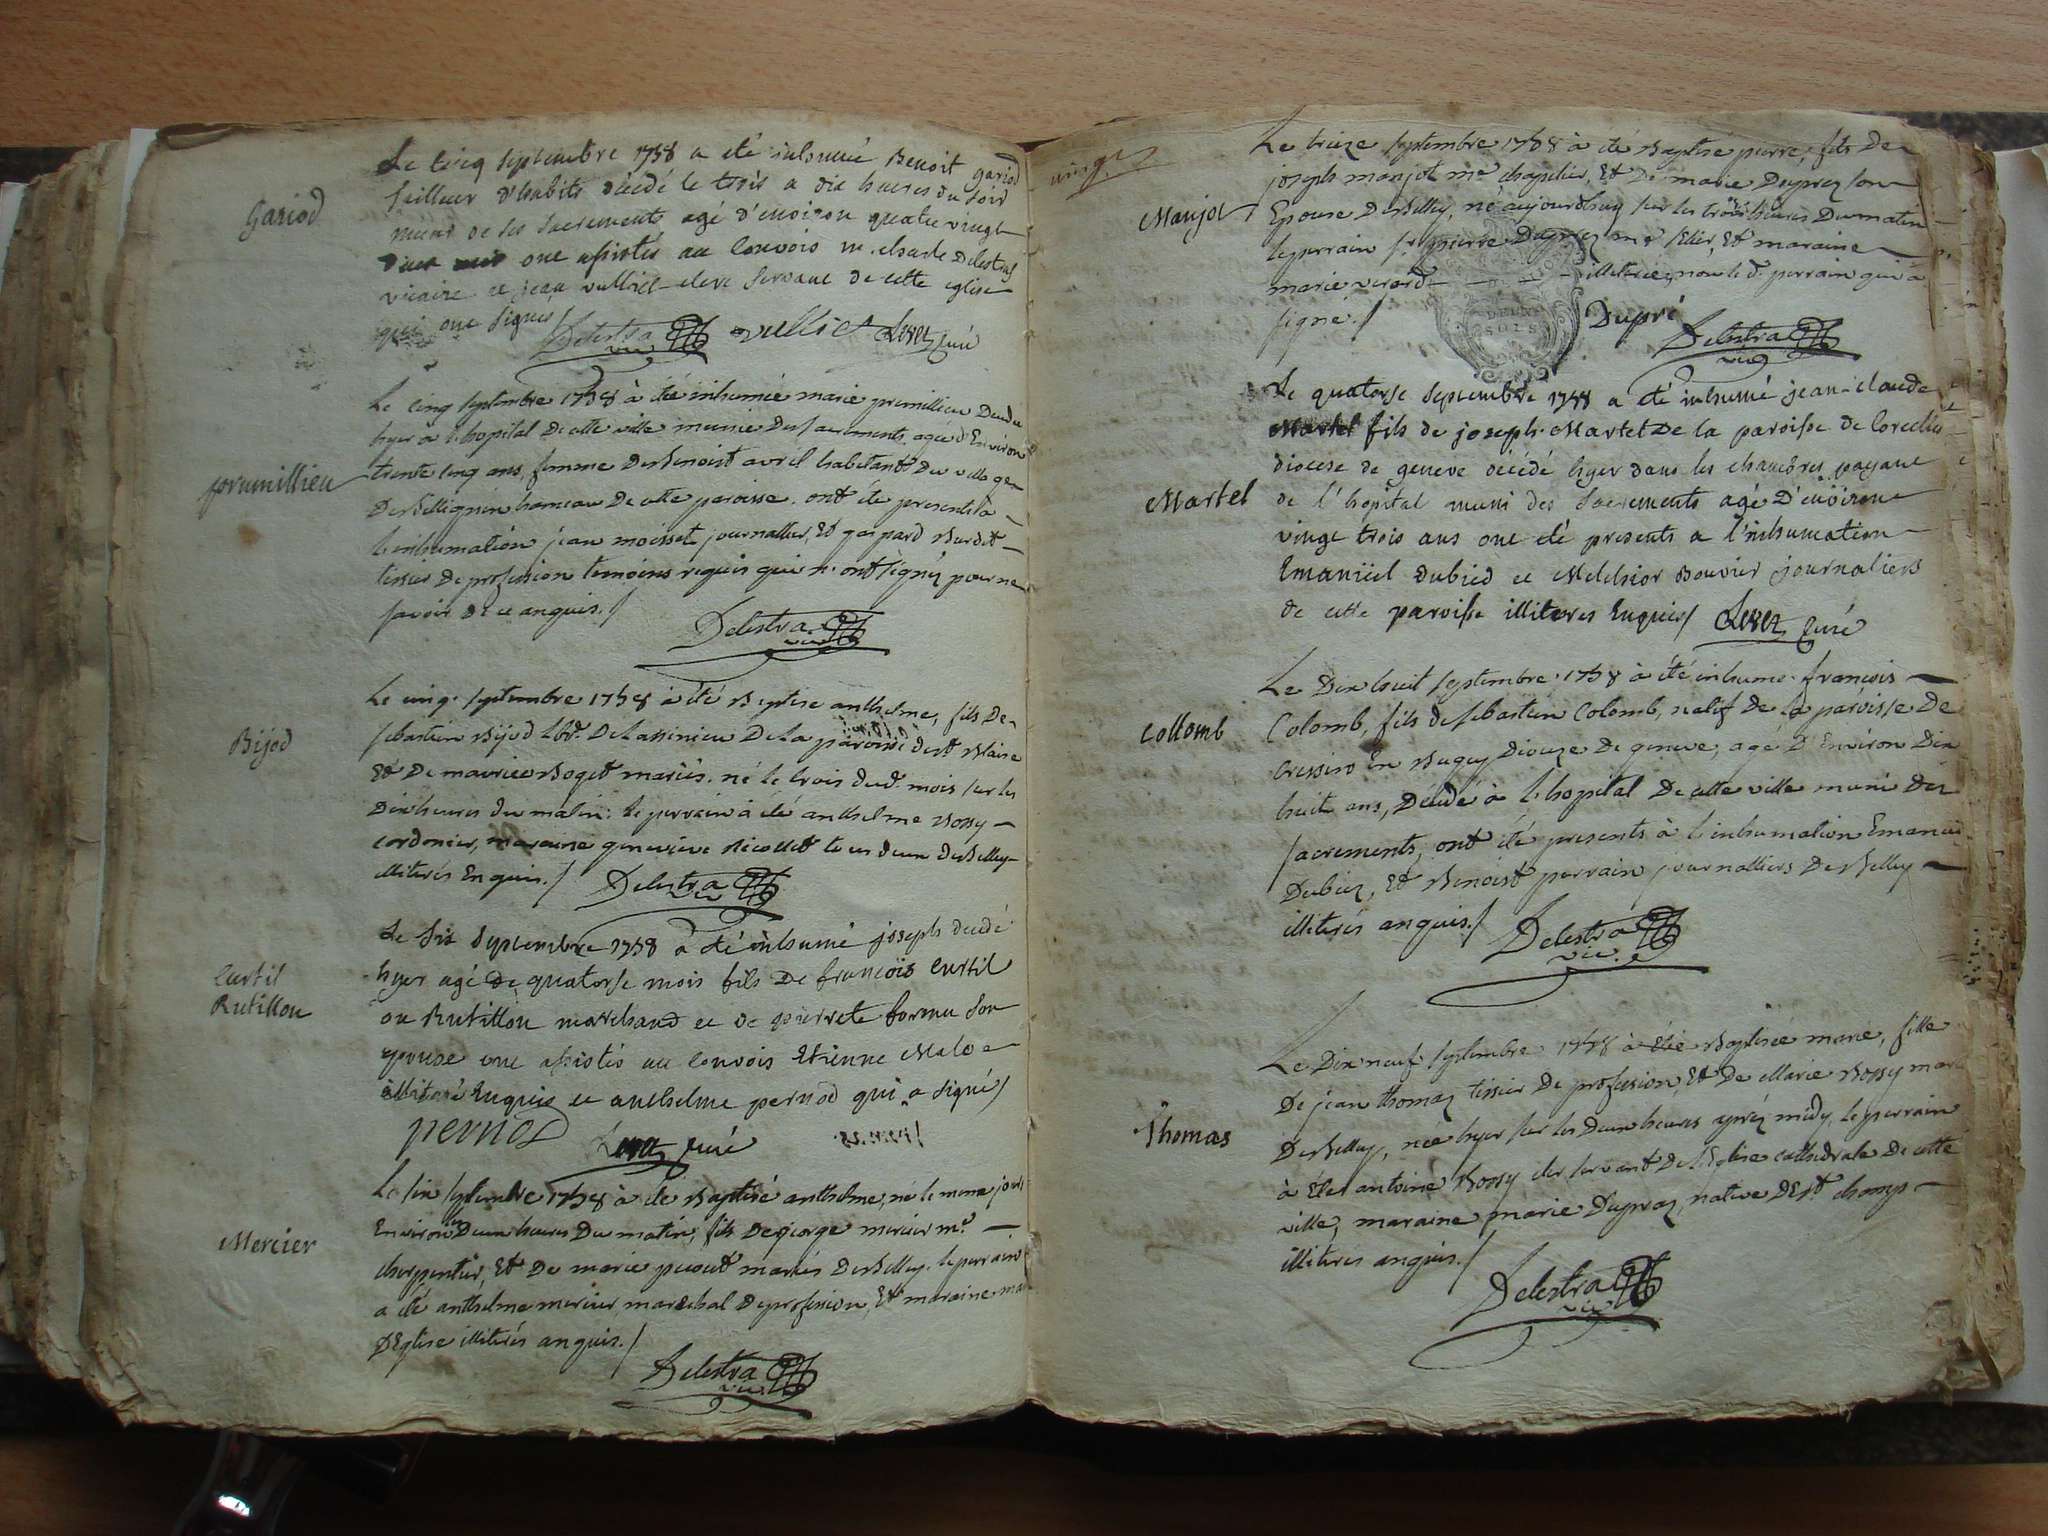 Gariod
Le cinq septembre 1758 a été inhumé Benoit gariod
tailleur d'habits décédé le trois a dix heures du soir
muni de ses sacrements agé d'environ quatre vingt
ont assistés au convois m. charle Delestra
vicaire et jean vulliet clerc servant de cette eglise
qui ont signés /
Delestra vic vulliet curé
prumillieu
Le cinq septembre 1758 à été inhumée marie prumillieu Decedee
hyer à l'hopital De cette ville munie Des sacrements, agée d'Environ
trente cinq ans, femme De Benoist avril habitant Du village
De Billignin hameau De cette paroisse. ont été presents à
l'inhumation jean moisset journallier, Et gaspard Burdet
tissier De profession temoins requis qui n'ont signéz pour ne
savoir De ce anquis. /
Delestra vic
Bijod
Le cinq septembre 1758 à été Baptise anthelme, fils De
sebastien Bijod lbr. De Lassinieu De La paroisse de st Blaise
Et De maurice Boget mariés. né le trois dud. mois sur les
Dix heures du matin: le perrain à été anthelme Bossy
cordonier, maraine genevieve Nicollet tous deux De Belley
illiterés Enquis. / Delestra vic
Curtil
Rutillon
Le six septembre 1758 a été inhumé joseph decedé
hyer agé de quatorse mois fils De françois Curtil
ou Rutillon marchand et de pierrete fornu son
epouse ont assistés au convois Etienne Malo
illiteré Enquis et anthelme pernod qui a signé /
pernod curé
Mercier
Le six septembre 1758 à été Baptisé anthelme, né le meme jour
Environ Deux heures Du matin, fils De george mercier me.
cherpentier, Et De marie picout mariés De Belley. le perrain
a été anthelme mercier marechal De profession, Et maraine
D'Eglise illiterés anquis. /
Delestra vic
Manjot
Le treize septembre 1758 à été Baptisé pierre, fils De
joseph manjot me chapelier, Et De marie Duprez son
Epouse De Belley, né aujourdhuy sur les trois heures Du matin
le perrain sr. pierre Duprez me selier, Et maraine
marie virard illiterée, non le d. perrain qui à
signé. /
DEUX
SOLS
Dupré
Delestra vic
Martel
Le quatorse septembre 1758 a été inhumé jean-claude
Martel fils de joseph Martel De la paroisse de Corcelles
diocese de geneve décédé hyer dans les chambres payant
de l'hopital muni des sacrements agé D'environ
vingt trois ans ont été presents a l'inhumation
Emanüel Dubied et Melchior Bouvier journaliers
de cette paroisse illiteres Enquis / curé
Collomb
Le Dix huit septembre 1758 à été inhumé françois
Colomb, fils de sebastien Colomb, natif De la paroisse De
Cressin En Bugey Dioceze De geneve, agé D'Environ Dix
huit ans, Décedé à l'hopital De cette ville muni Des
sacrements, ont été presents à l'inhumation Emanuel
Dubiez, Et Benoist perrain journalliers De Belley
illiterés anquis. /
Delestra vic.
Thomas
Le Dix neuf septembre 1758 à été Baptisée marie, fille
De jean thomas tissier De profession, Et De Marie Bossy mariés
De Belley, née hyer sur les Deux heures aprez midy, le perrain
à Eté antoine Bossy clerc servant De l'Eglise cathedrale De cette
ville, maraine marie Dupraz, native D'Est champ
illiteres anquis. /
Delestra vic